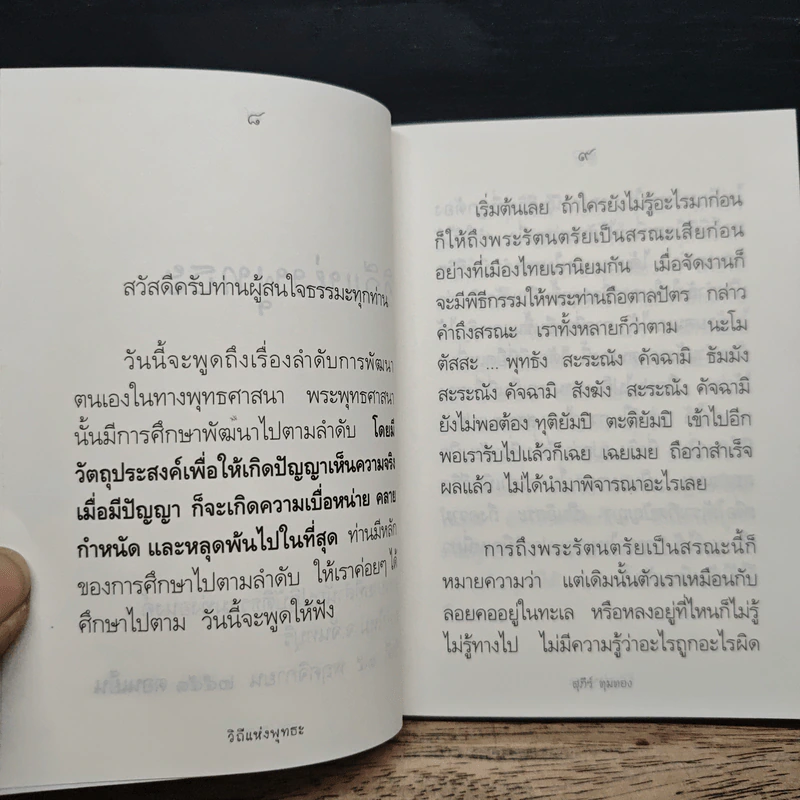 ๘
สวัสดีครับท่านผู้สนใจธรรมะทุกท่าน
วันนี้จะพูดถึงเรื่องลำดับการพัฒนา
ตนเองในทางพุทธศาสนา พระพุทธศาสนา
นั้นมีการศึกษาพัฒนาไปตามลำดับ โดยมี
วัตถุประสงค์เพื่อให้เกิดปัญญาเห็นความจริง
เมื่อมีปัญญา ก็จะเกิดความเบื่อหน่าย คลาย
กำหนัด และหลุดพ้นไปในที่สุด ท่านมีหลัก
ของการศึกษาไปตามลำดับ ให้เราค่อยๆ ได้
ศึกษาไปตาม วันนี้จะพูดให้ฟัง
วิถีแห่งพุทธะ
๙
เริ่มต้นเลย ถ้าใครยังไม่รู้อะไรมาก่อน
ก็ให้ถึงพระรัตนตรัยเป็นสรณะเสียก่อน
อย่างที่เมืองไทยเรานิยมกัน เมื่อจัดงานก็
จะมีพิธีกรรมให้พระท่านถือตาลปัตร กล่าว
คำถึงสรณะ เราทั้งหลายก็ว่าตาม นะโม
ตัสสะ ... พุทธัง สะระณัง คัจฉามิ ธัมมัง
สะระณัง คัจฉามิ สังฆัง สะระณัง คัจฉามิ
ยังไม่พอต้อง ทุติยัมปิ ตะติยัมปิ เข้าไปอีก
พอเรารับไปแล้วก็เฉย เฉยเมย ถือว่าสำเร็จ
ผลแล้ว ไม่ได้นำมาพิจารณาอะไรเลย
การถึงพระรัตนตรัยเป็นสรณะนี้ก็
หมายความว่า แต่เดิมนั้นตัวเราเหมือนกับ
ลอยคออยู่ในทะเล หรือหลงอยู่ที่ไหนก็ไม่รู้
ไม่รู้ทางไป ไม่มีความรู้ว่าอะไรถูกอะไรผิด
สุภีร์ ทุมทอง